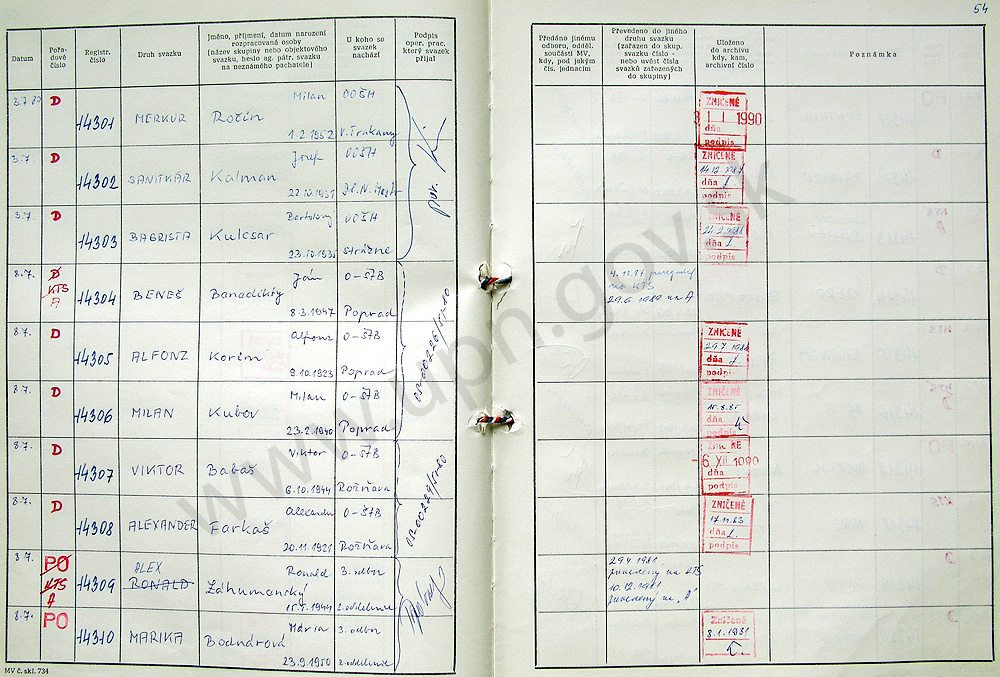 54
Datum
Pořadové číslo
Registr. číslo
Druh svazku
Jméno, příjmení, datum narození
rozpracované osoby
(název skupiny nebo objektového
svazku, heslo ag. pátr. svazku
na neznámého pachatele)
U koho se
svazek
nachází
Podpis
oper. prac.
který svazek
přijal
Předáno jinému
odboru, odděl.
součásti MV,
kdy, pod jakým
čís. jednacím
Převedeno do jiného
druhu svazku
(zařazen do skup.
svazku číslo -
nebo uvést čísla
svazků zařazených
do skupiny)
Uloženo
do archivu
kdy, kam,
archivní číslo
Poznámka
3.7.80 D 14301 MERKUR Milan Rotin 1.2.1952 OOŠH V. Trakany
ZNIČENÉ 3 1 I 1990 dňa podpis
3.7. D 14302 SANITKÁR Jozef Kalman OOŠH
ZNIČENÉ dňa podpis
3.7. D 14303 BAGRISTA Kulcsar 23.10.1935 OOŠH Strážne
ZNIČENÉ dňa podpis
8.7. D KTS A 14304 BENEŠ Ján Benadikty 8.3.1947 O-ŠTB Poprad
na KTS
29.6.1989 na A
8.7. D 14305 ALFONZ Alfonz Korim 9.10.1923 O-ŠTB Poprad
ZNIČENÉ dňa podpis
8.7. D 14306 MILAN Milan Kubov 23.2.1940 O-ŠTB Poprad
15.8.85
8.7. D 14307 VIKTOR Viktor Babaš 6.10.1944 O-ŠTB Rožňava
6 XII 1990 dňa podpis
8.7. D 14308 ALEXANDER Alexander Farkaš 20.11.1921 O-ŠTB Rožňava
ZNIČENÉ 17.11.83 dňa podpis
8.7. PO KTS A 14309 ALEX RONALD Ronald Záhumanský 15.7.1944 3. odbor 2. oddelenie
29.4.1981
prevedený na KTS
10.12.1981
prevedený na "A"
8.7. PO 14310 MARIKA Mária Bodnárová 23.9.1950 3. odbor 2. oddelenie
Zničené 8.1.1981
MV č. skl. 734
www.upn.gov.sk